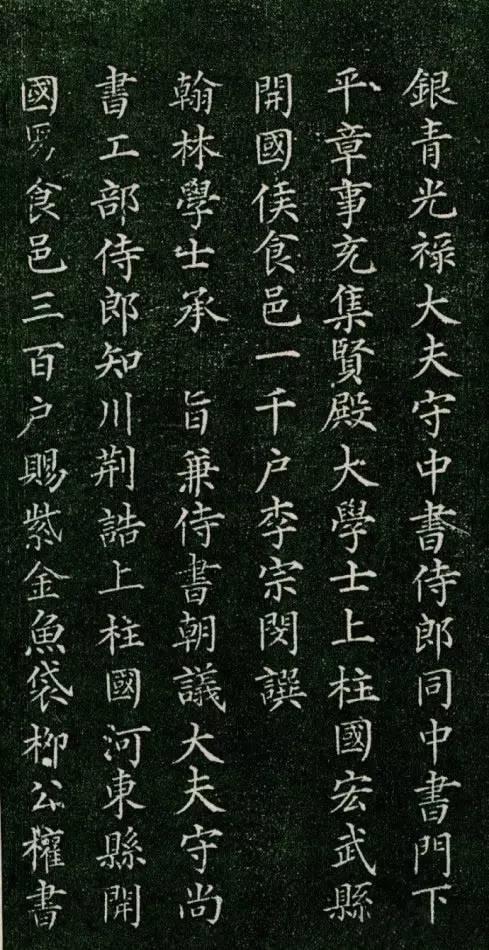 銀青光祿大夫守中書侍郎同中書門下
平章事充集賢殿大學士上柱國宏武縣
開國侯食邑一千户李宗閔譔
翰林學士承　旨兼侍書朝議大夫守尚
書工部侍郎知川荆誥上柱國河東縣開
國男食邑三百户賜紫金魚袋柳公權書